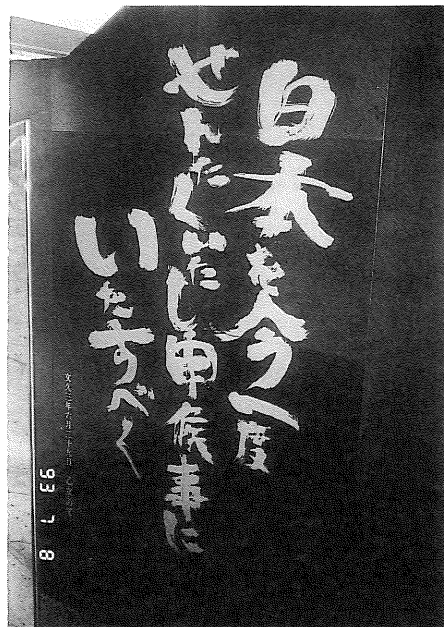 日本を今一度
せんたくいたし申候事に
いたすべく
文久三年六月二十九日
93 7 8